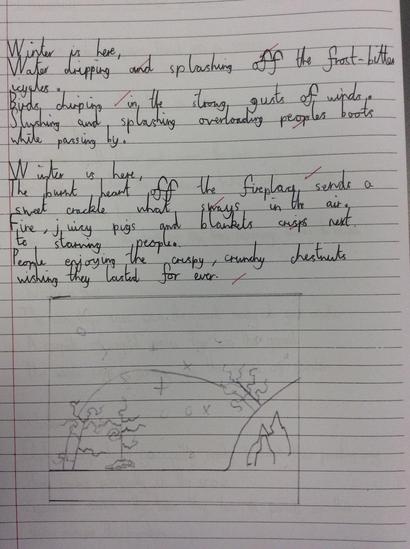 Winter is here,
Water dripping and splashing off the frost-bitten
icycles.
Birds chirping in the strong gusts of winds.
Slushing and splashing overloading peoples boots
while passing by.
Winter is here,
The burnt heart off the fireplace sends a
sweet crackle what sways in the air.
Fire, juicy pigs and blankets crisps next
to starving people.
People enjoying the crispy, crunchy chestnuts
wishing they lasted for ever.